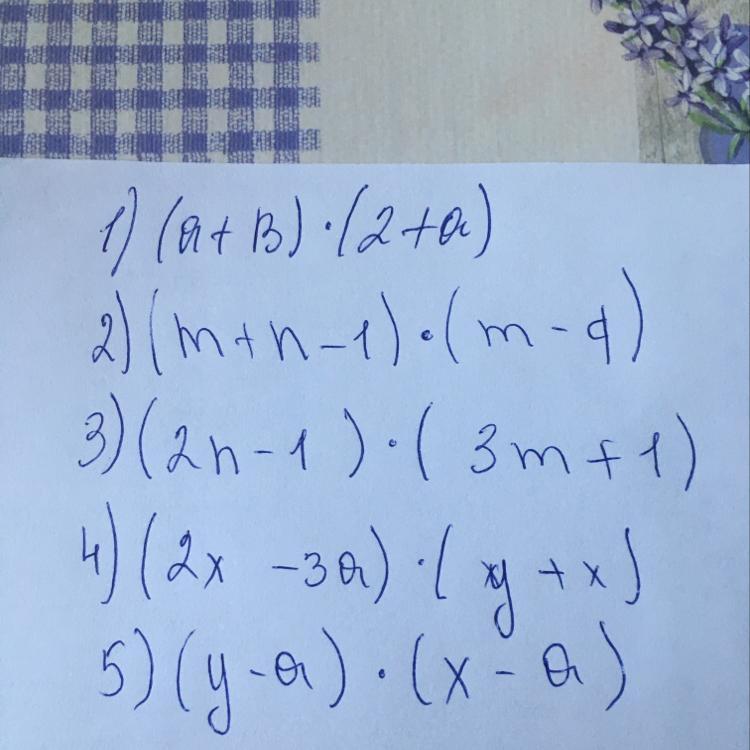 1) (a + b) · (2 + a)
2) (m + n - 1) · (m - q)
3) (2n - 1) · (3m + 1)
4) (2x - 3a) · (y + x)
5) (y - a) · (x - a)